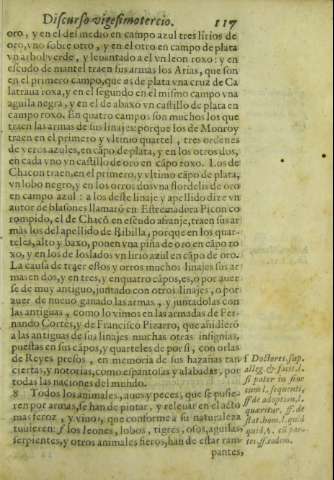 Discurso vigesimotercio. 117
oro, y en el del medio en campo azul tres lirios de
oro, vno sobre otro, y en el otro en campo de plata
vn arbol verde, y leuantado a el vn leon roxo: y en
escudo de mantel traen sus armas los Arias, que son
en el primero campo, que es de plata vna cruz de Ca
latraua roxa, y en el segundo en el mismo campo vna
aguila negra, y en el de abaxo vn castillo de plata en
campo roxo. En quatro campos son muchos los que
traen las armas de sus linajes: porque los de Monroy
traen en el primero y vltimo quartel, tres ordenes
de veros azules, en cāpo de plata, y en los otros dos,
en cada vno vn castillo de oro en cāpo roxo. Los de
Chacon traen, en el primero, y vltimo cāpo de plata,
vn lobo negro, y en los otros dos vna flor de lis de oro
en campo azul: a los deste linaje y apellido dize vn
autor de blasones llamarō en Estremadura Picon co
rompido, el de Chacō en escudo afranje, traen sus ar
mas los del apellido de Bibilla, porque en los quar-
teles, alto y baxo, ponen vna piña de oro en cāpo ro
xo, y en los de los lados vn lirio azul en cāpo de oro.
La causa de traer estos y otros muchos linajes sus ar
mas en dos, y en tres, y en quatro cāpos, es, o por auer
se de muy antiguo, juntado con otros linajes, o por
auer de nueuo ganado las armas, y juntadolas con
las antiguas, como lo vimos en las armadas de Fer-
nando Cortes, y de Francisco Pizarro, que añidierō
a las antiguas de sus linajes muchas otras insignias,
puestas en sus cāpos, y quarteles de por si, con orlas
de Reyes presos, en memoria de sus hazañas tan
ciertas, y notorias, como espantosas y alabadas, por
todas las naciones del mundo.
8 Todos los animales, aues y peces, que se pusie-
ren por armas, se han de pintar, y releuar en el acto
mas feroz, y viuo, que conforme a su naturaleza
tuuieren: f los leones, lobos, tigres, osos, aguilas
serpientes, y otros animales fieros, han de estar ram-
pantes,
f Doctores sup.
alleg. & facit. l.
si pater in fiur
tium l. sequenti,
ff. de adoption. l.
quaeritur. ff. de
stat. hom. l. quid
quid,
ff. eodem.